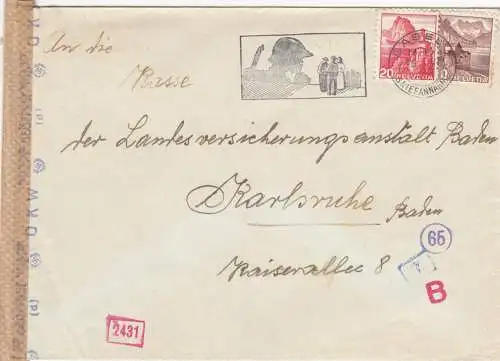 An die
Kasse
der Landesversicherungsanstalt Baden
Karlsruhe Baden
Kaiserallee 8
BASEL
BRIEFANNAHME
20 HELVETIA
HELVETIA
65
B
2431
OKW
(d)
OKW
(d)